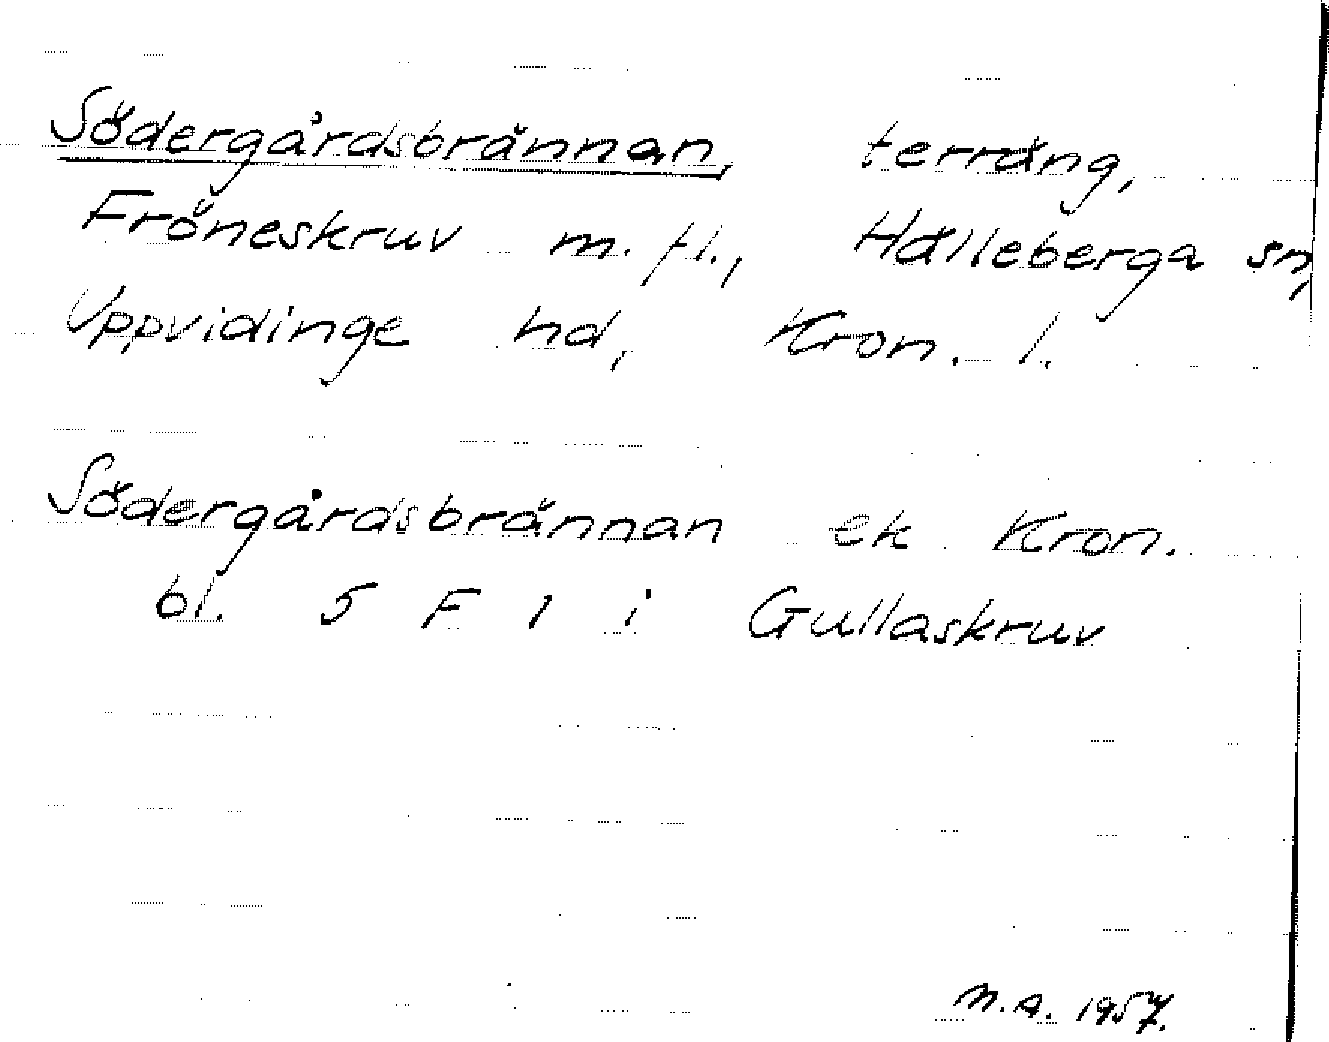 Södergårdsbrännan, terräng,
Fröneskruv m. fl., Hälleberga sn,
Uppvidinge hd, Kron. l.
Södergårdsbrännan ek Kron.
bl. 5 F 1 i Gullaskruv
N.A. 1957.